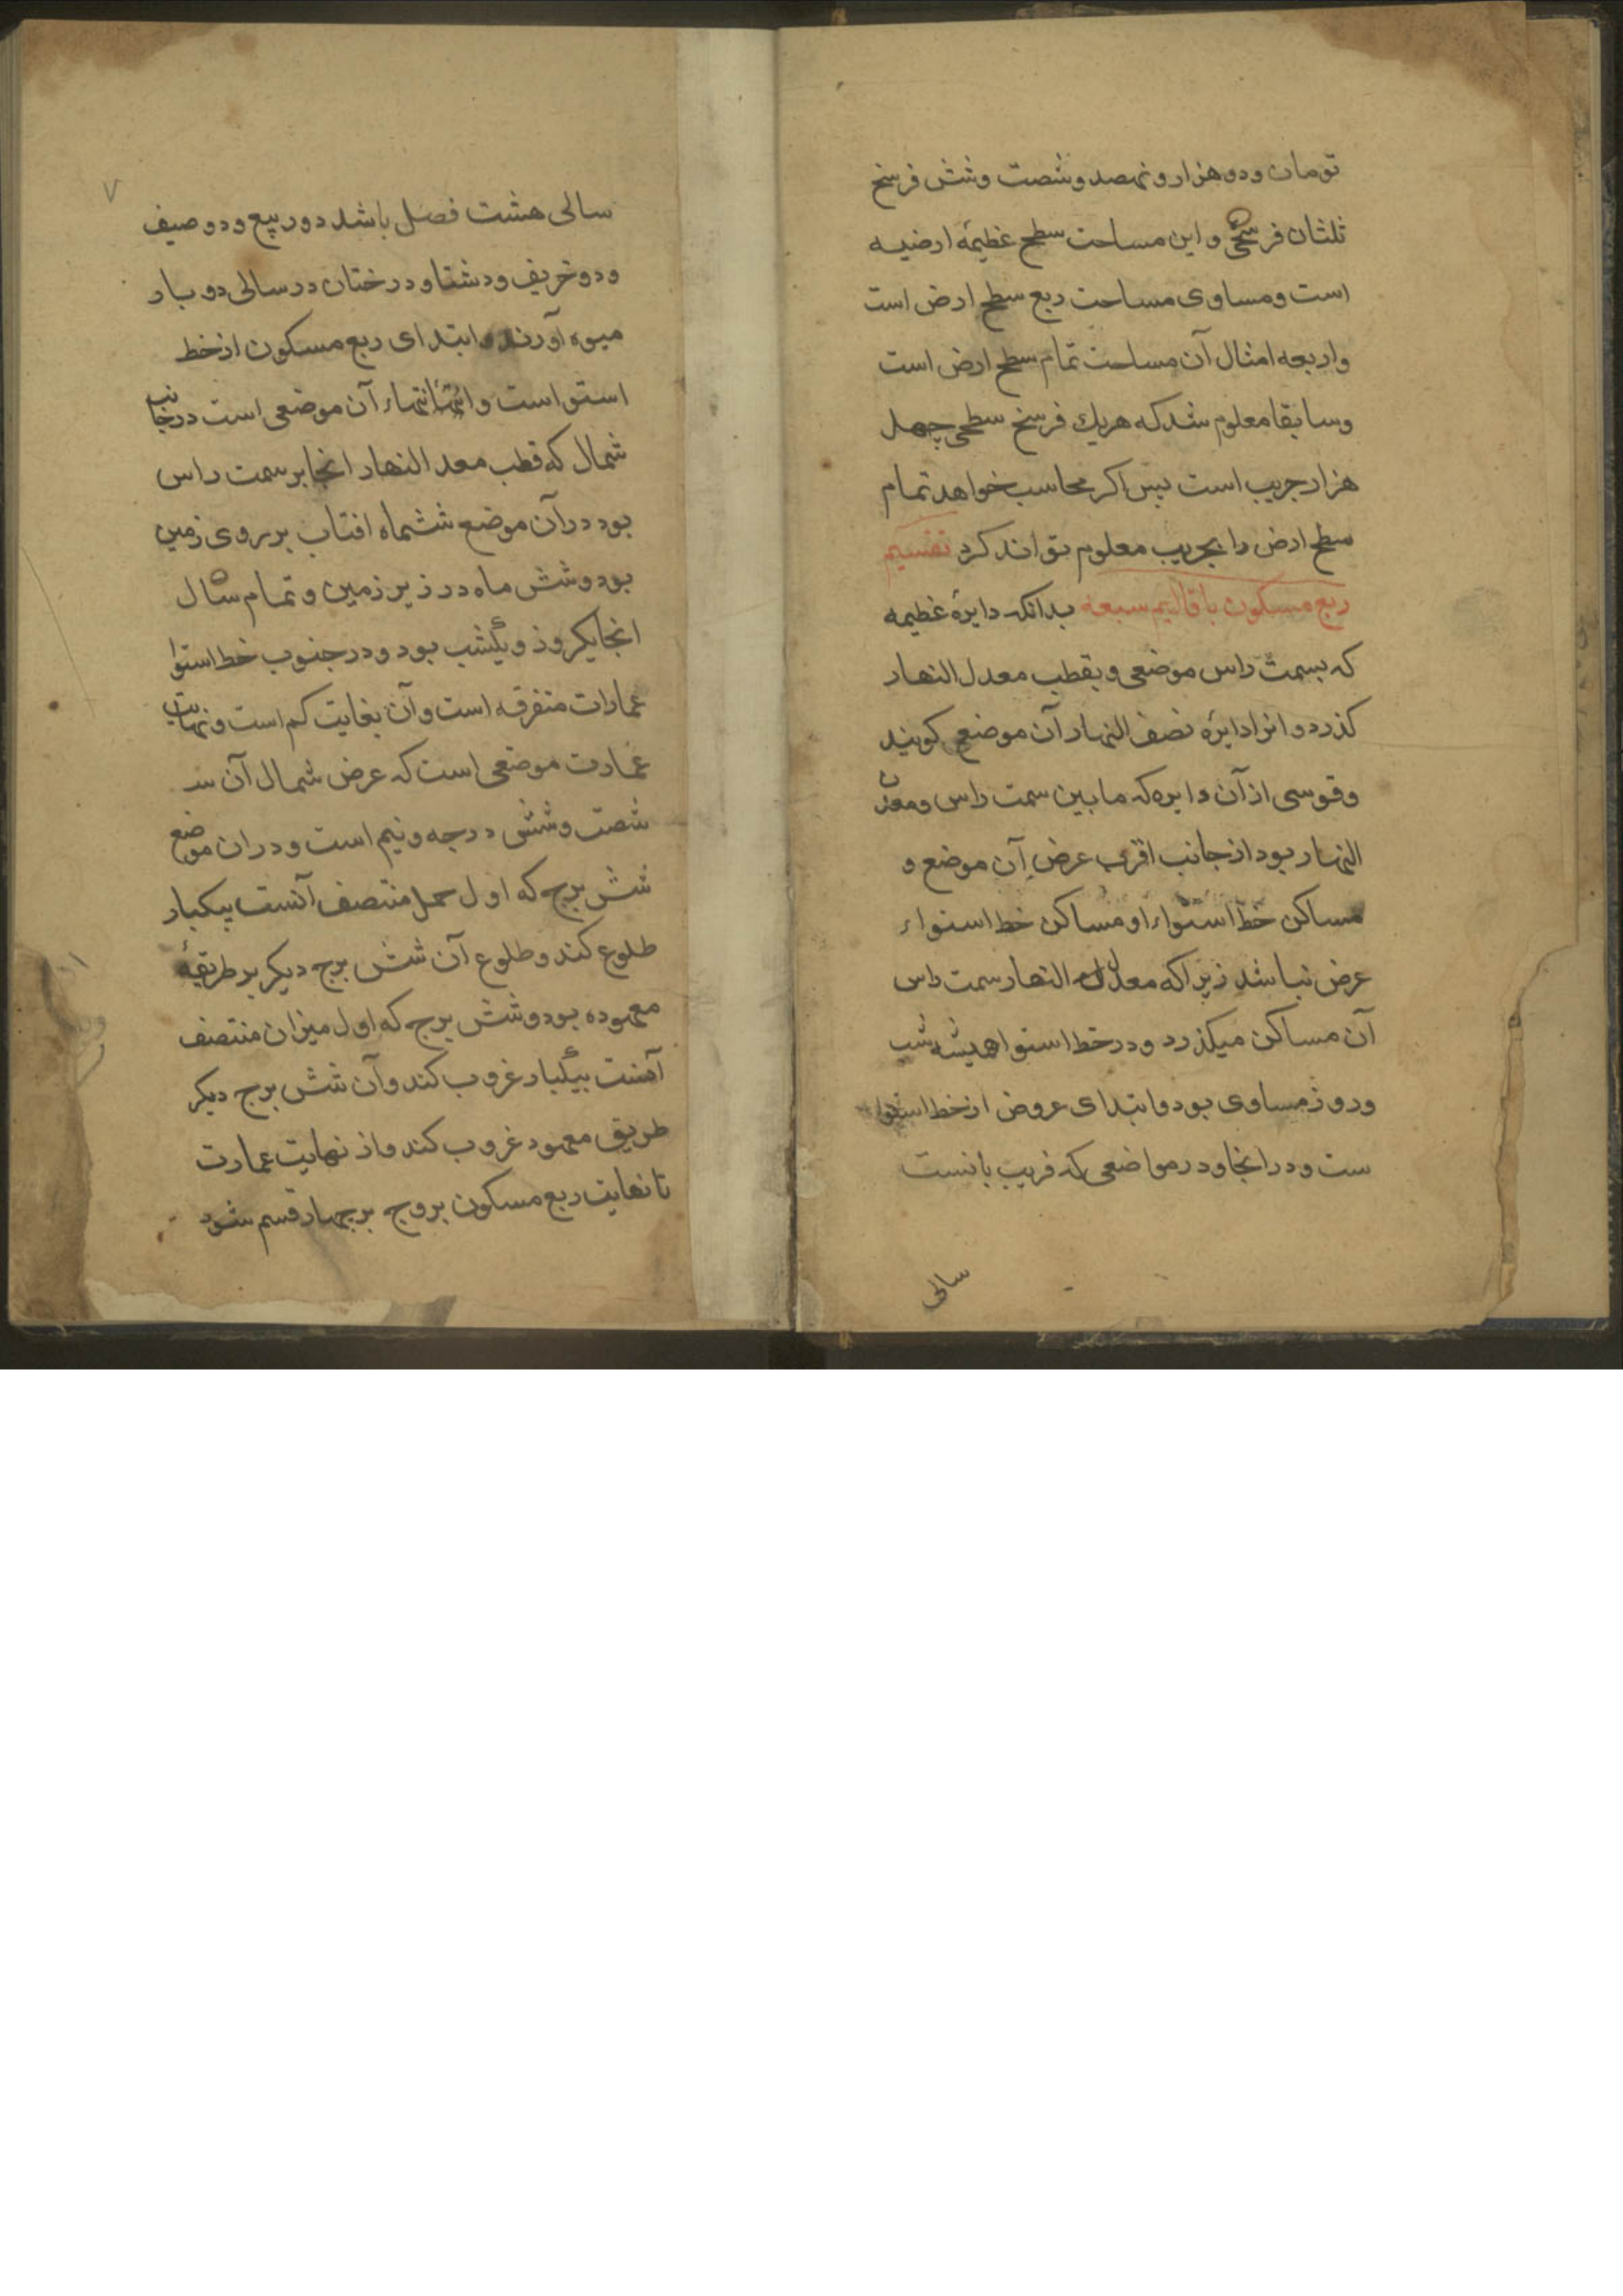 تومان و دو هزار و نهصد و شصت و شش فرسخ
ثلثان فرسخی و این مساحت سطح عظیمهٔ ارضیه
است و مساوی مساحت ربع سطح ارض است
و اربعه امثال آن مساحت تمام سطح ارض است
و سابقا معلوم شد که هریك فرسخ سطحی چهل
هزار جریب است پس اکر محاسب خواهد تمام
سطح ارض را بجریب معلوم تواند کرد تقسیم
ربع مسکون باقالیم سبعه بدانکه دایرهٔ عظیمه
که بسمت راس موضعی و بقطب معدل النهار
کذرد و انرا دایرهٔ نصف النهار آن موضع کویند
و قوسی از آن دایره که مابین سمت راس و معدل
النهار بود از جانب اقرب عرض آن موضع و
مساکن خط استواء او مساکن خط استواء
عرض نباشد زیرا که معدل النهار سمت راس
آن مساکن میکذرد و در خط استوا همیشه شب
و روز مساوی بود و ابتدای عروض از خط استوا
ست و در انجا و در مواضعی که قریب بانست
سالی
۷
سالی هشت فصل باشد دو ربیع و دو صیف
و دو خریف و د شتا و درختان در سالی دو بار
میوه آورند و ابتدای ربع مسکون از خط
استو است و انتهاء آن موضعی است در جانب
شمال که قطب معد النهار انجا بر سمت راس
بود در آن موضع ششماه افتاب بر روی زمین
بود و شش ماه در زیر زمین و تمام سال
انجا یکروز و یکشب بود و در جنوب خط استوا
عمارات متفرقه است و آن بغایت کم است و نهایت
عمارت موضعی است که عرض شمال آن
شصت و شش درجه و نیم است و در ان موضع
شش برج که اول حمل منتصف آنست بیکبار
طلوع کند و طلوع آن شش برج دیکر بر طریقهٔ
معهوده بود و شش برج که اول میزان منتصف
آنست بیکبار غروب کند و آن شش برج دیکر
طریق معهود غروب کند و از نهایت عمارت
تا نهایت ربع مسکون بروج بر چهار قسم شود